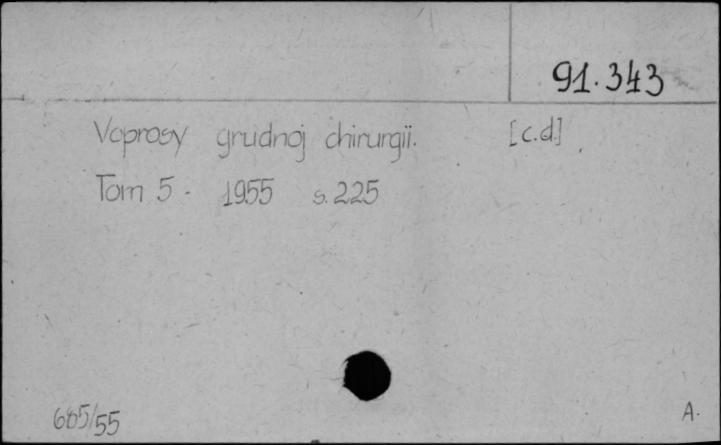 91.343
Voprosy grudnoj chirurgii. [c.d.]
Tom 5 - 1955 s. 225
685/55
A.